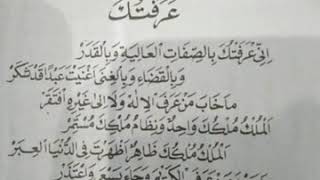 عَرَفْتُكَ
اِنِّيْ عَرَفْتُكَ بِالصِّفَاتِ الْعَالِيَةِ وَبِالْقَدَرْ
وَبِالْقَضَاءِ وَبِالْغِنَى اَغْنَيْتَ عَبْدًا قَدْ شَكَرْ
مَاخَابَ مَنْ عَرَفَ الْاِلٰهَ وَلَا اِلَى غَيْرِهِ افْتَقَرْ
اَلْمُلْكُ مُلْكُكَ وَاحِدٌ وَنِظَامُ مُلْكِكَ مُسْتَمِرْ
اَلْمُلْكُ مُلْكُكَ ظَاهِرٌ اَظْهَرْتَ فِى الدُّنْيَا الْعِبَرْ
الْكَرِيْمَ وَجَاءَ يَسْعَى وَاعْتَذَرْ